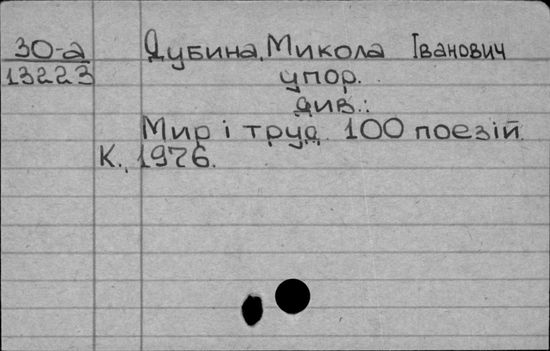 30-а Дубина, Микола Іванович
13223 упор.
див.:
Мир і труд. 100 поезій.
К., 1976.